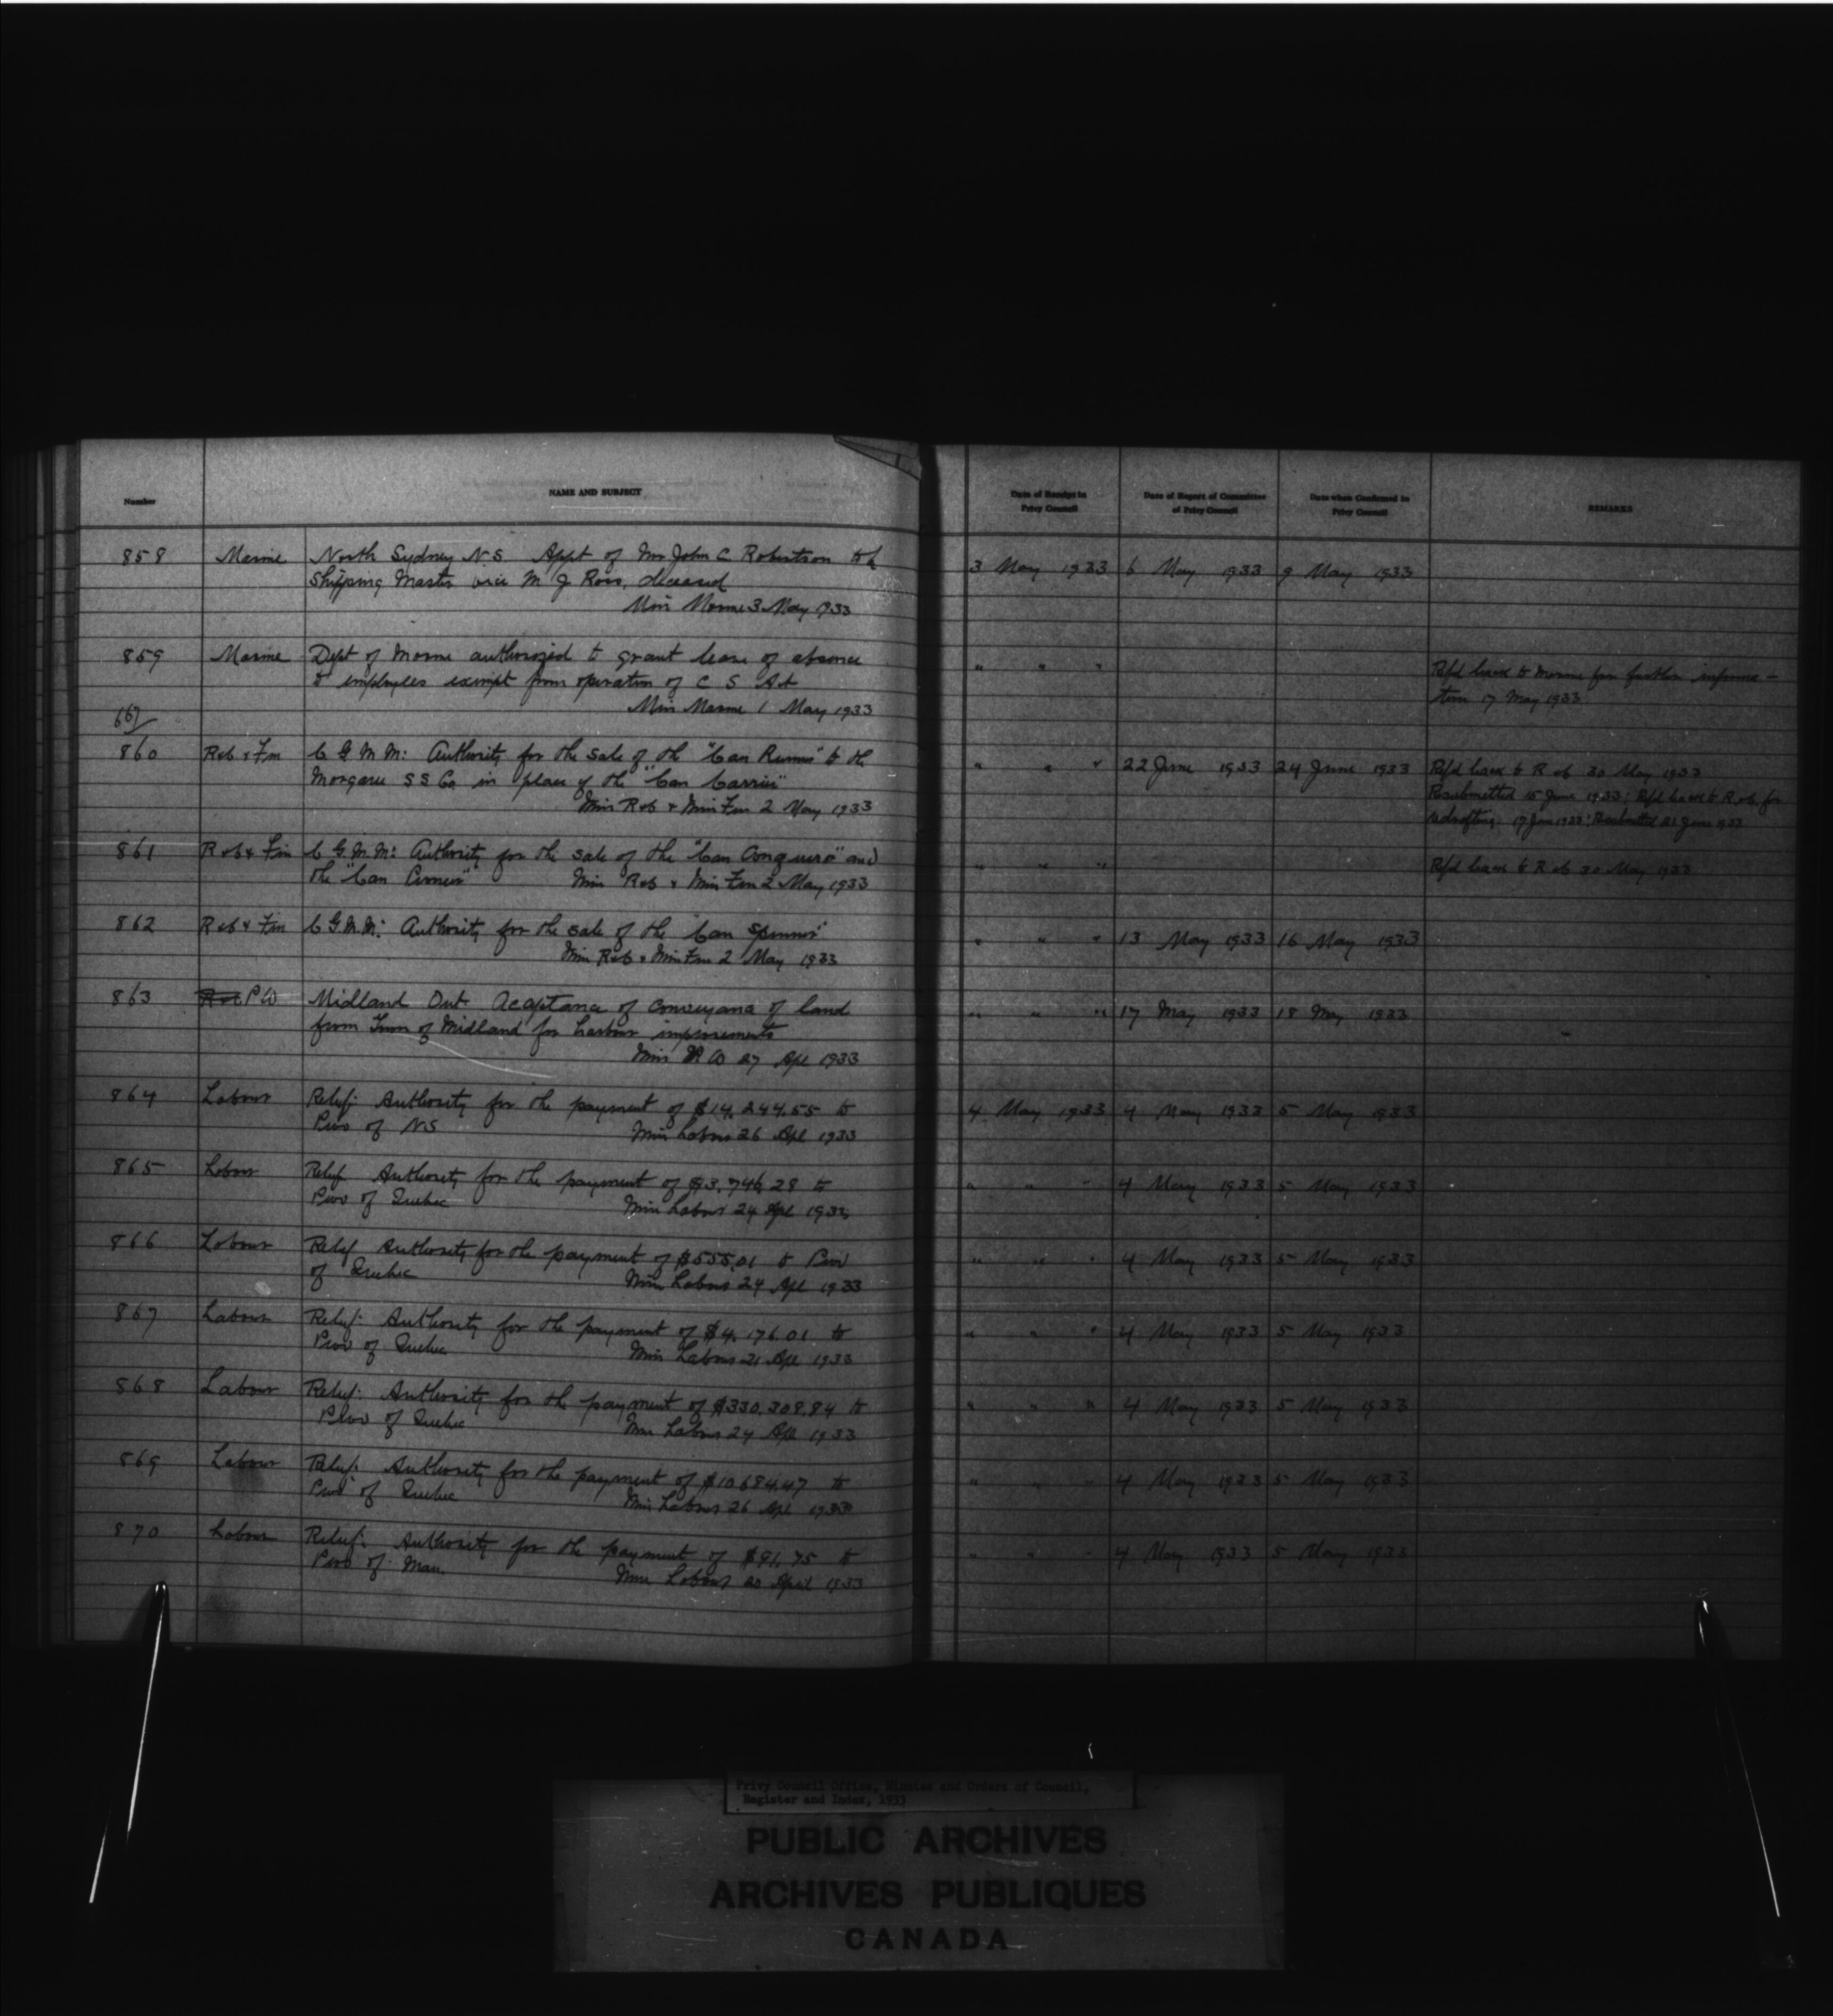 Number
NAME AND SUBJECT
Date of Receipt in Privy Council
Date of Report of Committee of Privy Council
Date when Confirmed in Privy Council
REMARKS
858 Marine North Sydney N.S Appt of Mr John C Robertson to be 3 May 1933 6 May 1933 9 May 1933
Shipping Master vice M J Ross, deceased
Min Marine 3 May 1933
859 Marine Dept of Marine authorized to grant leave of absence " " "
to employees exempt from operation of C S Act Refd back to Marine for further informa-
Min Marine 1 May 1933 tion 17 May 1933
667
860 R&C & Fin C G M M: Authority for the sale of the "Can Runner" to the " " " 22 June 1933 24 June 1933 Refd back to R & C 30 May 1933
S S Co in place of the "Can Carrier" Resubmitted 15 June 1933; Refd back to R & C for
Min R&C & Min Fin 2 May 1933 redrafting 17 June 1933; Resubmitted 21 June 1933
861 R&C & Fin C G M M: Authority for the sale of the "Can Conqueror" and " " " Refd back to R & C 30 May 1933
the "Can Min R&C & Min Fin 2 May 1933
862 R&C & Fin C G M M: Authority for the sale of the "Can Spinner" " " " 13 May 1933 16 May 1933
Min R&C & Min Fin 2 May 1933
863 P W Midland Ont. Acceptance of conveyance of land " " " 17 May 1933 18 May 1933
from Town of Midland for harbour improvements
Min P W 27 Apl 1933
864 Labour Relief: Authority for the payment of $14,244.55 to 4 May 1933 4 May 1933 5 May 1933
Prov of N S Min Labour 26 Apl 1933
865 Labour Relief Authority for the payment of $3,746.28 to " " " 4 May 1933 5 May 1933
Prov of Quebec Min Labour 24 Apl 1933
866 Labour Relief Authority for the payment of $555.01 to Prov " " " 4 May 1933 5 May 1933
of Quebec Min Labour 24 Apl 1933
867 Labour Relief: Authority for the payment of $4,176.01 to " " " 4 May 1933 5 May 1933
Prov of Quebec Min Labour 21 Apl 1933
868 Labour Relief: Authority for the payment of $330,308.84 to " " " 4 May 1933 5 May 1933
Prov of Quebec Min Labour 24 Apl 1933
869 Labour Relief: Authority for the payment of $10684.47 to " " " 4 May 1933 5 May 1933
Prov of Quebec Min Labour 26 Apl 1933
870 Labour Relief: Authority for the payment of $91.75 to " " " 4 May 1933 5 May 1933
Prov of Man. Min Labour 20 April 1933
Privy Council Office, Minutes and Orders of Council,
Register and Index, 1933
PUBLIC ARCHIVES
ARCHIVES PUBLIQUES
CANADA